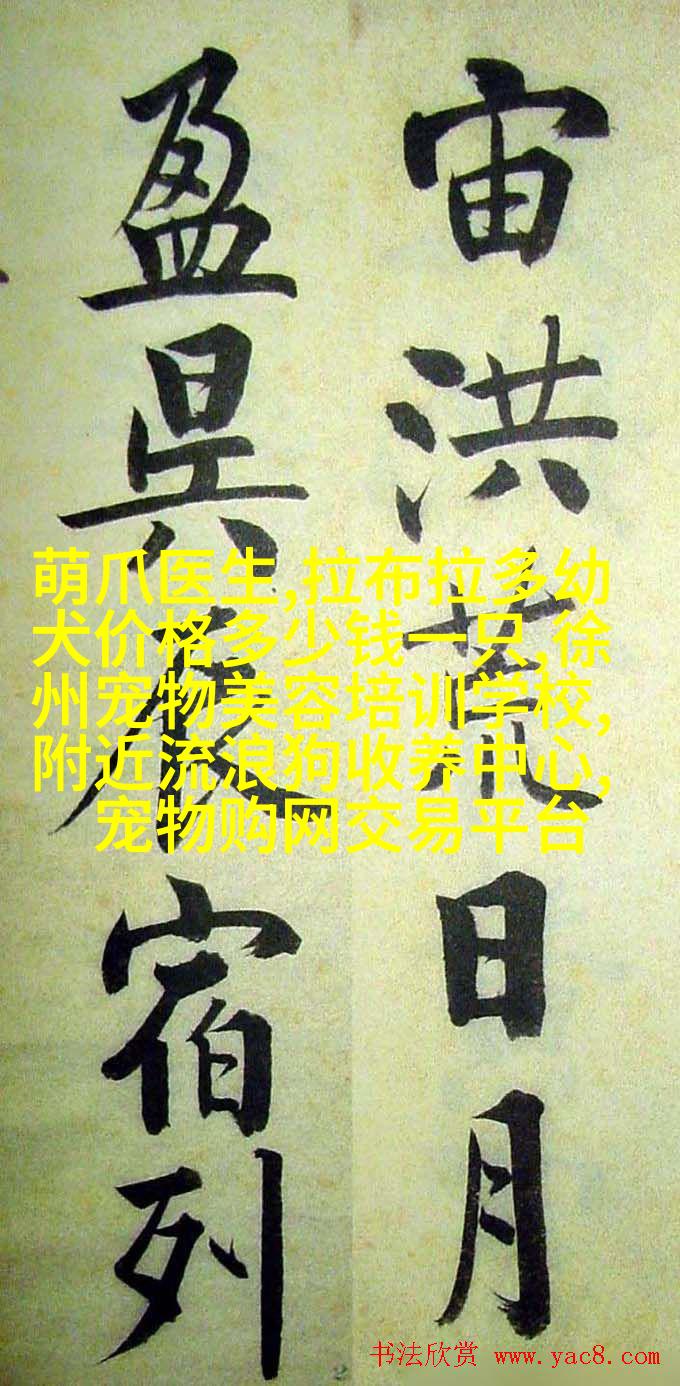 宙洪荒日月
盈昃辰宿列
萌爪医生,拉布拉多幼
犬价格多少钱一只,徐
州宠物美容培训学校,
附近流浪狗收养中心,
宠物购网交易平台
书法欣赏 www.yac8.com
2